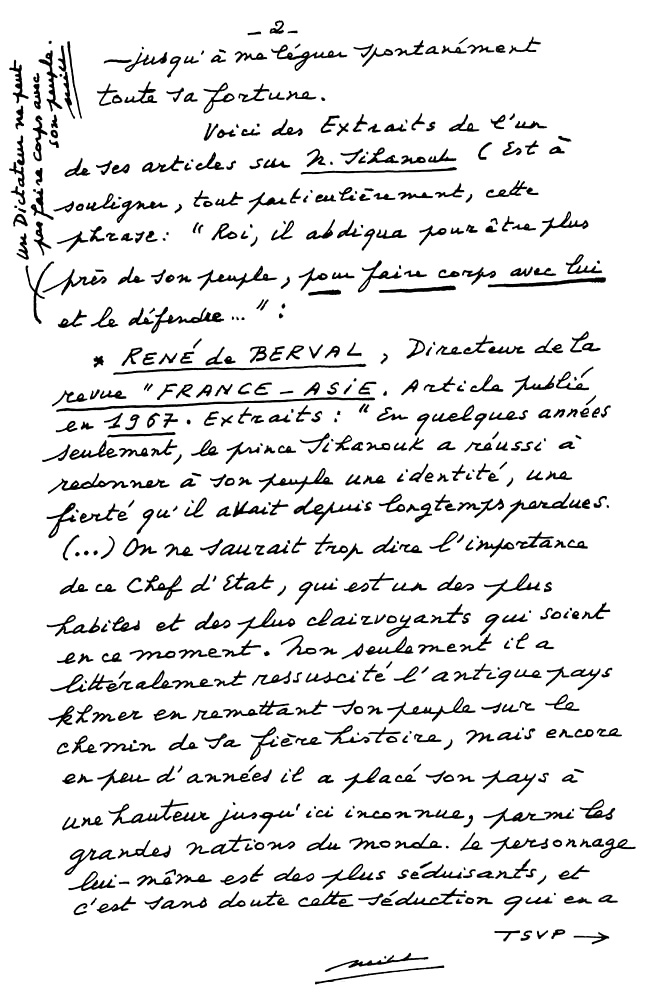 - 2 -
— jusqu'à me léguer spontanément
toute sa fortune.
Voici des Extraits de l'un
de ses articles sur N. Sihanouk (Est à
souligner, tout particulièrement, cette
phrase : "Roi, il abdiqua pour être plus
près de son peuple, pour faire corps avec lui
et le défendre..." :
* RENÉ de BERVAL, Directeur de la
revue "FRANCE-ASIE. Article publié
en 1967. Extraits : "En quelques années
seulement, le prince Sihanouk a réussi à
redonner à son peuple une identité, une
fierté qu'il avait depuis longtemps perdues.
(...) On ne saurait trop dire l'importance
de ce Chef d'Etat, qui est un des plus
habiles et des plus clairvoyants qui soient
en ce moment. Non seulement il a
littéralement ressuscité l'antique pays
khmer en remettant son peuple sur le
chemin de sa fière histoire, mais encore
en peu d'années il a placé son pays à
une hauteur jusqu'ici inconnue, parmi les
grandes nations du monde. Le personnage
lui-même est des plus séduisants, et
c'est sans doute cette séduction qui en a
TSVP →
Un Dictateur ne peut
pas faire corps avec
son peuple.